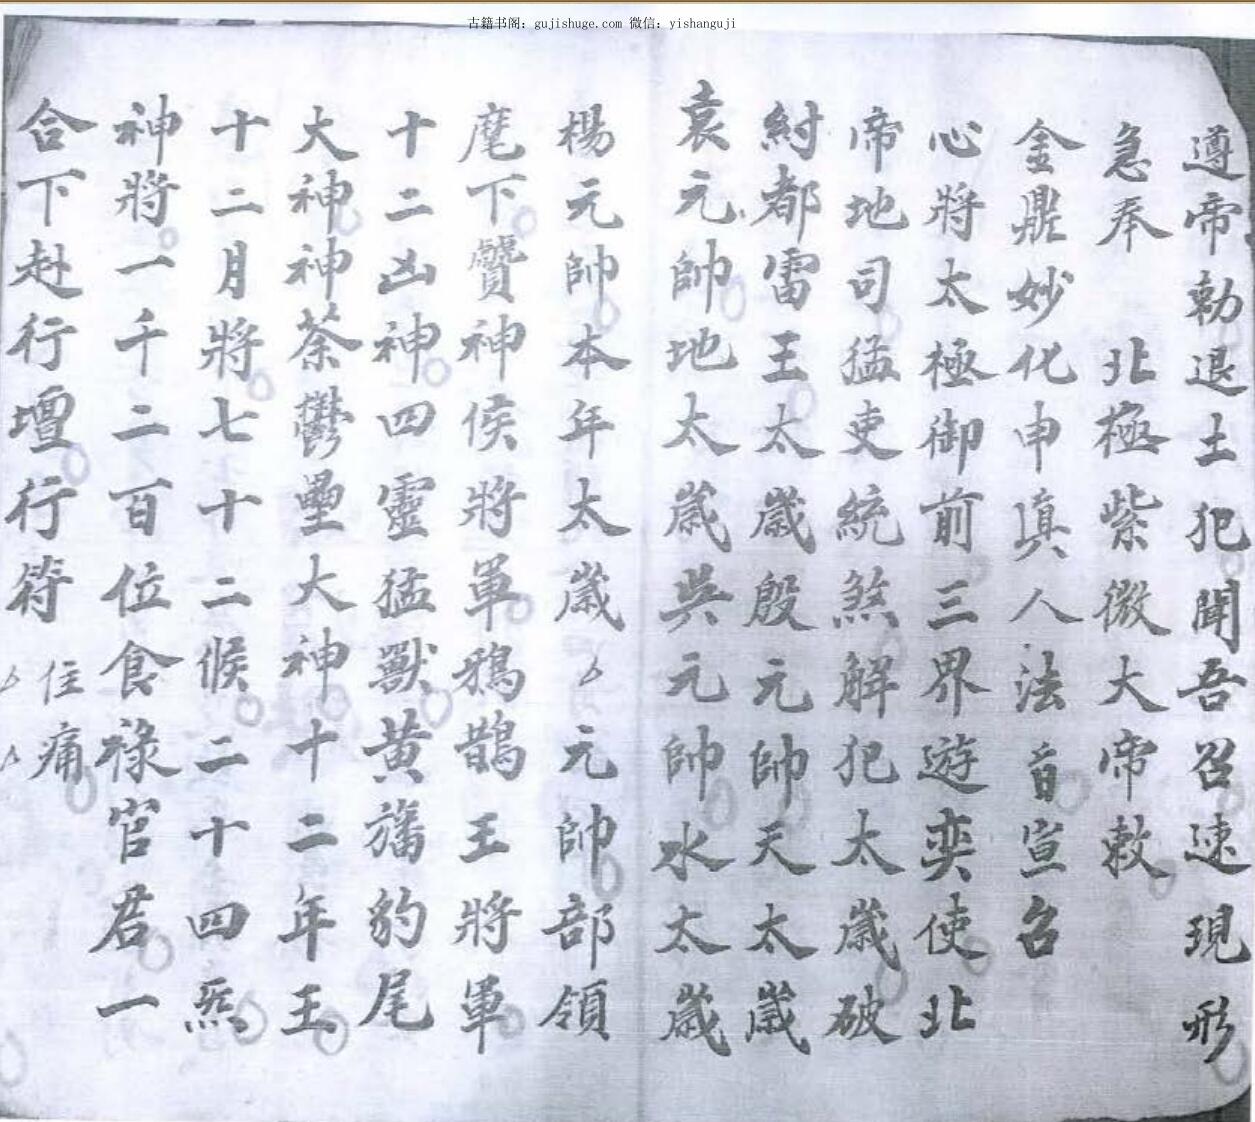 古籍书阁：gujishuge.com 微信：yishanguji
遵帝勅退土犯聞吾召速現形
急奉 北極紫微大帝敕
金鼎妙化申真人法旨宣召
心將太極御前三界遊奕使北
帝地司猛吏統煞解犯太歲破
紂都雷王太歲殷元帥天太歲
袁元帥地太歲吳元帥水太歲
楊元帥本年太歲厶元帥部領
麾下贊神侯將軍鴉鵲王將軍
十二凶神四靈猛獸黄旛豹尾
大神神荼鬱壘大神十二年王
十二月將七十二候二十四炁
神將一千二百位食祿官君一
合下赴行壇行符
住厶
痛厶